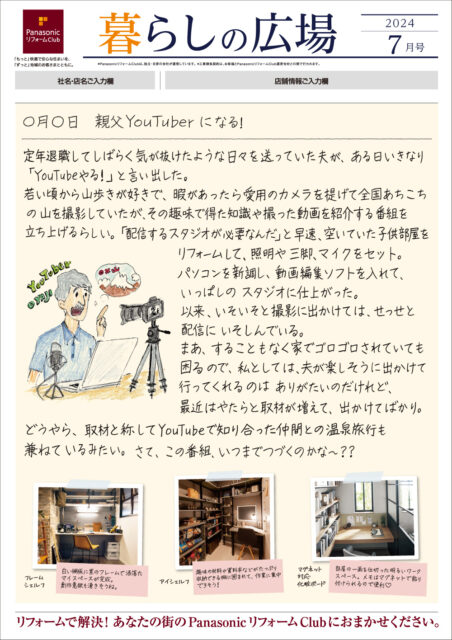 Panasonic
リフォームClub
「もっと」快適で安心な住まいを、
「ずっと」地域のお客さまとともに。
暮らしの広場
2024
7月号
社名・店名ご入力欄
店舗情報ご入力欄
〇月〇日 親父YouTuberになる!
定年退職してしばらく気が抜けたような日々を送っていた夫が、ある日いきなり
「YouTubeやる!」と言い出した。
若い頃から山歩きが好きで、暇があったら愛用のカメラを提げて全国あちこち
の山を撮影していたが、その趣味で得た知識や撮った動画を紹介する番組を
立ち上げるらしい。「配信するスタジオが必要なんだ」と早速、空いていた子供部屋を
リフォームして、照明や三脚、マイクをセット。
パソコンを新調し、動画編集ソフトを入れて、
いっぱしのスタジオに仕上がった。
以来、いそいそと撮影に出かけては、せっせと
配信にいそしんでいる。
まあ、することもなく家でゴロゴロされていても
困るので、私としては、夫が楽しそうに出かけて
行ってくれるのはありがたいのだけれど、
最近はやたらと取材が増えて、出かけてばかり。
どうやら、取材と称してYouTubeで知り合った仲間との温泉旅行も
兼ねているみたい。さて、この番組、いつまでつづくのかな〜??
YouTuber
フレーム
シェルフ
白い棚板に黒のフレームで洒落た
マイスペースが完成。
創作意欲も湧きそうね。
アイシェルフ
趣味の材料や資料本などがたっぷり
収納できる棚に囲まれて、作業に集中
できそう!
マグネット
対応
化粧ボード
部屋の一画を仕切った明るいワーク
スペース。メモはマグネットで貼り
付けられるので便利♡
リフォームで解決! あなたの街のPanasonic リフォーム Clubにおまかせください。